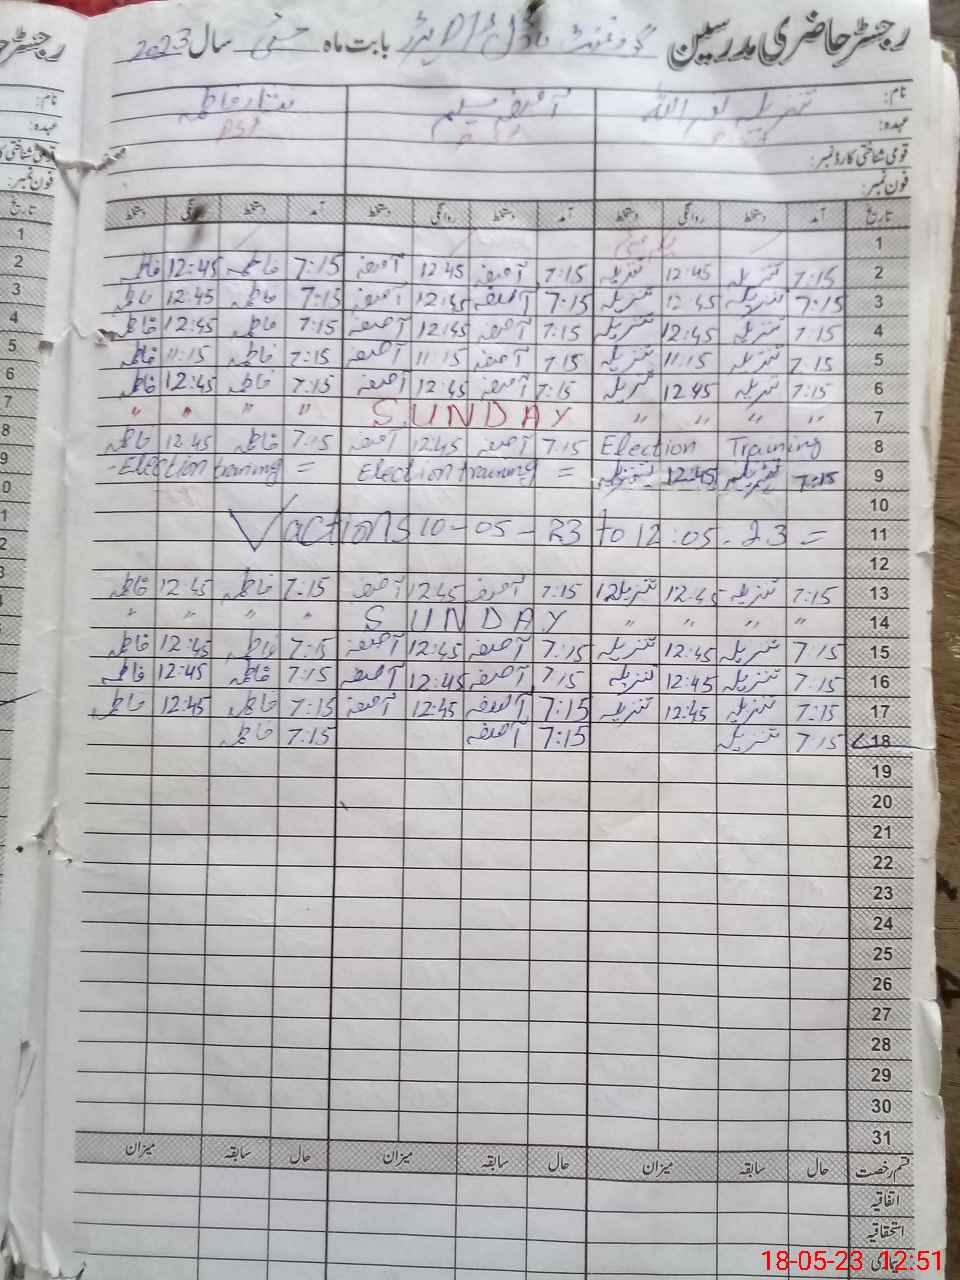 رجسٹر حاضری مدرسین گورنمنٹ ماڈل بابت ماہ مئی سال 2023
نام: آصفہ سلیم
عہدہ: PST
قومی شناختی کارڈ نمبر:
فون نمبر:
تاریخ آمد دستخط روانگی دستخط آمد دستخط روانگی دستخط آمد دستخط روانگی دستخط
1
2 7:15 تنزیلہ 12:45 تنزیلہ 7:15 آصفہ 12:45 آصفہ 7:15 فاطمہ 12:45 فاطمہ
3 7:15 تنزیلہ 12:45 تنزیلہ 7:15 آصفہ 12:45 آصفہ 7:15 فاطمہ 12:45 فاطمہ
4 7:15 تنزیلہ 12:45 تنزیلہ 7:15 آصفہ 12:45 آصفہ 7:15 فاطمہ 12:45 فاطمہ
5 7:15 تنزیلہ 11:15 تنزیلہ 7:15 آصفہ 11:15 آصفہ 7:15 فاطمہ 11:15 فاطمہ
6 7:15 تنزیلہ 12:45 تنزیلہ 7:15 آصفہ 12:45 آصفہ 7:15 فاطمہ 12:45 فاطمہ
7 " " " " SUNDAY " " " "
8 Election Training 7:15 آصفہ 12:45 آصفہ 7:15 فاطمہ 12:45 فاطمہ
9 7:15 تنزیلہ 12:45 تنزیلہ Election training = -Election training =
10
11 Vactions 10-05-23 to 12:05.23 =
12
13 7:15 تنزیلہ 12:45 تنزیلہ 7:15 آصفہ 12:45 آصفہ 7:15 فاطمہ 12:45 فاطمہ
14 " " " " SUNDAY " " " "
15 7:15 تنزیلہ 12:45 تنزیلہ 7:15 آصفہ 12:45 آصفہ 7:15 فاطمہ 12:45 فاطمہ
16 7:15 تنزیلہ 12:45 تنزیلہ 7:15 آصفہ 12:45 آصفہ 7:15 فاطمہ 12:45 فاطمہ
17 7:15 تنزیلہ 12:45 تنزیلہ 7:15 آصفہ 12:45 آصفہ 7:15 فاطمہ 12:45 فاطمہ
18 7:15 تنزیلہ 7:15 آصفہ 7:15 فاطمہ
19
20
21
22
23
24
25
26
27
28
29
30
31
قسم رخصت حال سابقہ میزان حال سابقہ میزان حال سابقہ میزان
اتفاقیہ
استحقاقیہ
بیماری
18-05-23 12:51